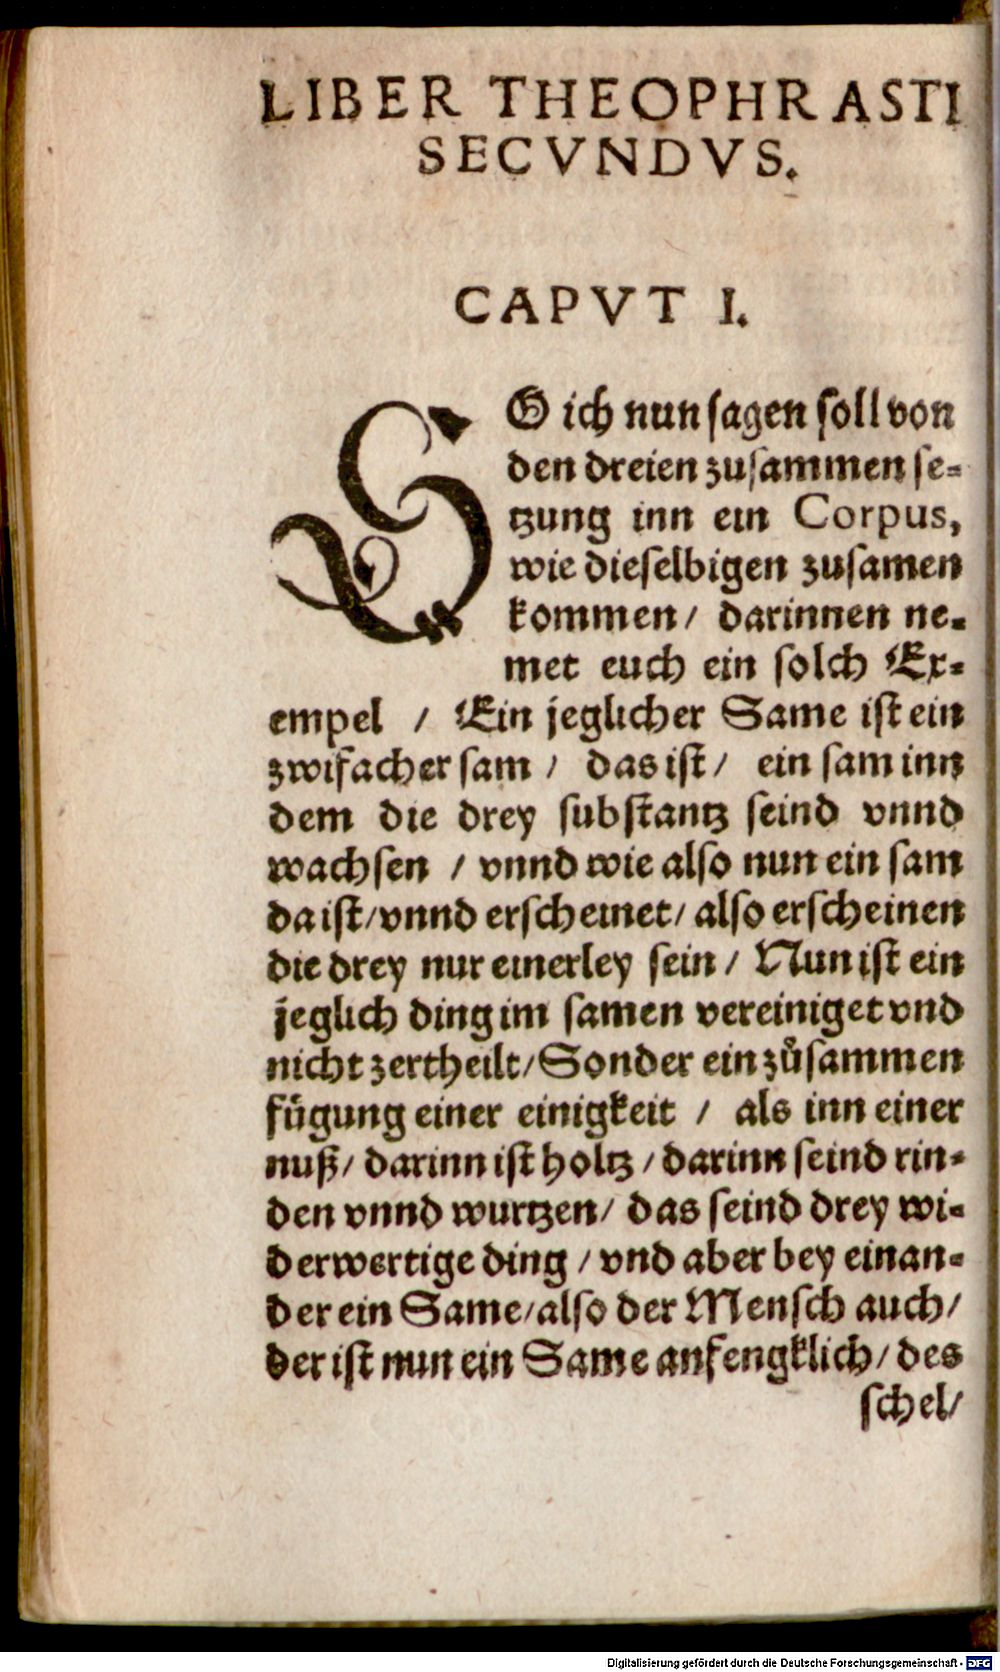 LIBER THEOPHRASTI
SECVNDVS.
CAPVT I.
SO ich nun sagen soll von
den dreien zusammen se-
tzung inn ein Corpus,
wie dieselbigen zusamen
kommen / darinnen ne-
met euch ein solch Ex-
empel / Ein jeglicher Same ist ein
zwifacher sam / das ist / ein sam inn
dem die drey substantz seind vnnd
wachsen / vnnd wie also nun ein sam
da ist / vnnd erscheinet / also erscheinen
die drey nur einerley sein / Nun ist ein
jeglich ding im samen vereiniget vnd
nicht zertheilt / Sonder ein zůsammen
fügung einer einigkeit / als inn einer
nuß / darinn ist holtz / darinn seind rin-
den vnnd wurtzen / das seind drey wi-
derwertige ding / vnd aber bey einan-
der ein Same / also der Mensch auch /
der ist nun ein Same anfengklich / des
schel /
Digitalisierung gefördert durch die Deutsche Forschungsgemeinschaft - DFG